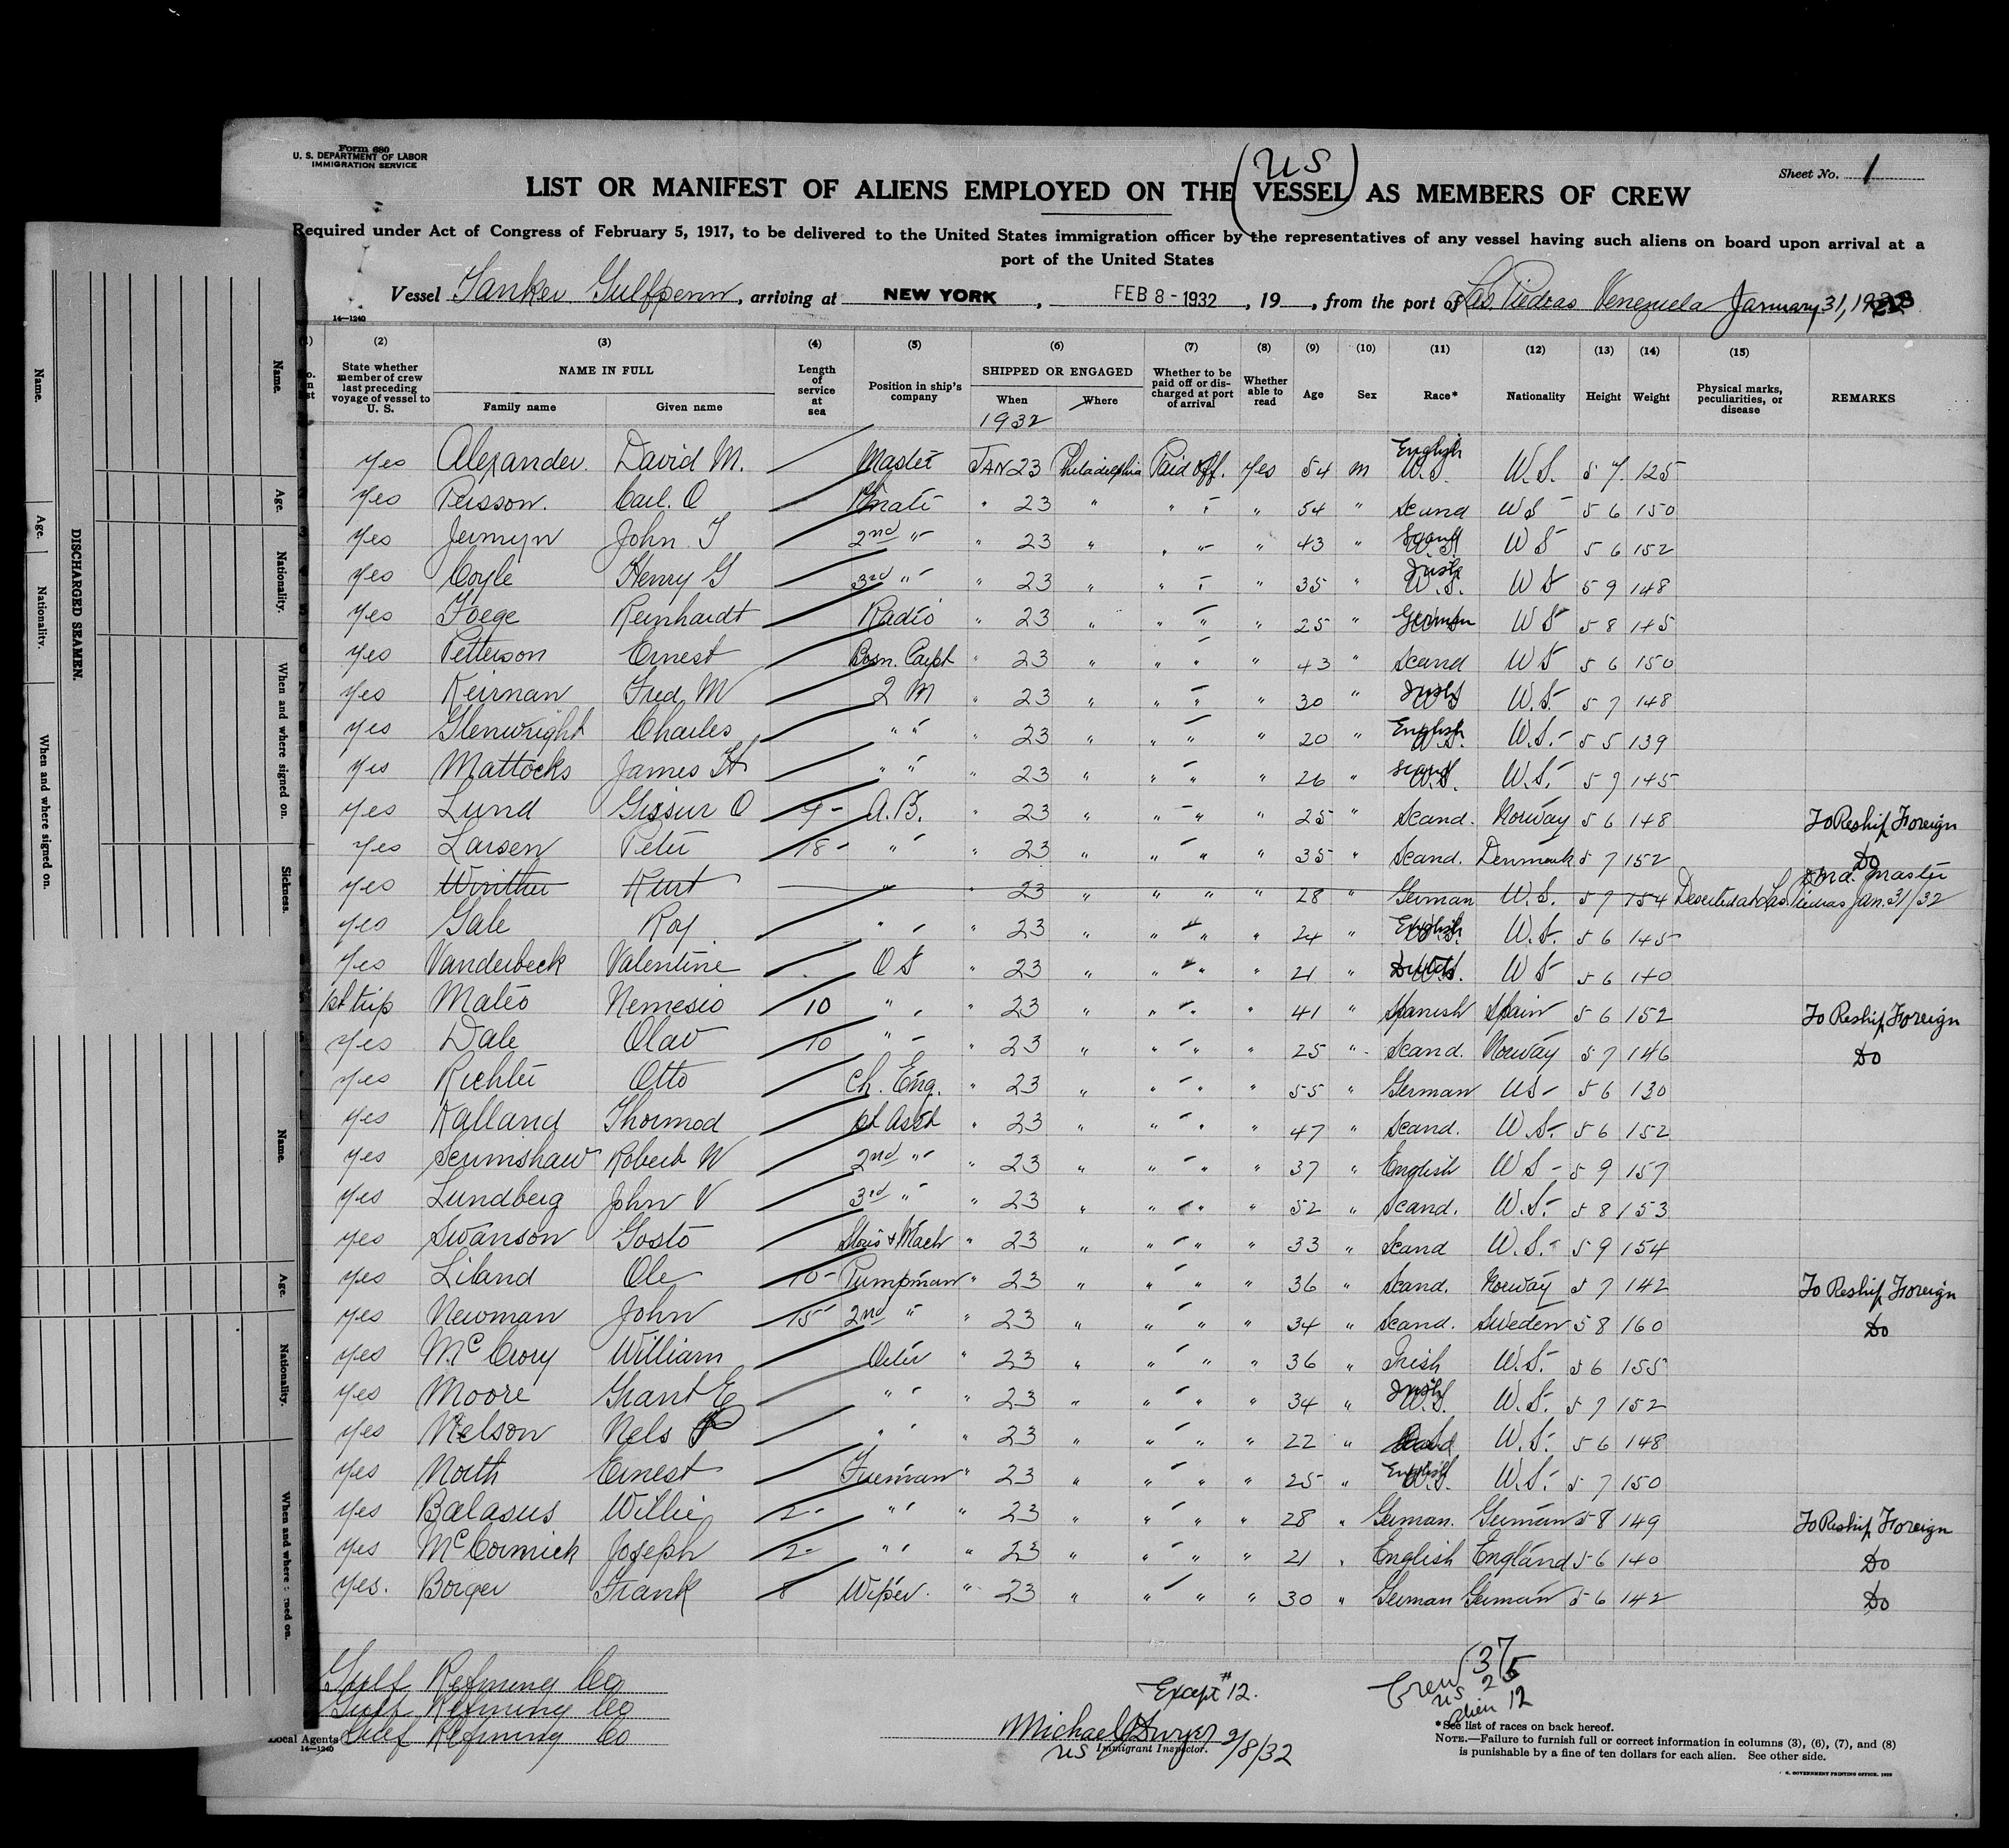 Form 680
U. S. DEPARTMENT OF LABOR
IMMIGRATION SERVICE
Sheet No. 1
(US)
LIST OR MANIFEST OF ALIENS EMPLOYED ON THE VESSEL AS MEMBERS OF CREW
Required under Act of Congress of February 5, 1917, to be delivered to the United States immigration officer by the representatives of any vessel having such aliens on board upon arrival at a
port of the United States
Vessel Tanker Gulfpenn, arriving at NEW YORK, FEB 8 - 1932, 19, from the port of Las Piedras Venezuela January 31, 1932
14—1240
(2) (3) (4) (5) (6) (7) (8) (9) (10) (11) (12) (13) (14) (15)
State whether member of crew last preceding voyage of vessel to U. S. NAME IN FULL Family name Given name Length of service at sea Position in ship's company SHIPPED OR ENGAGED When Where Whether to be paid off or discharged at port of arrival Whether able to read Age Sex Race* Nationality Height Weight Physical marks, peculiarities, or disease REMARKS
1932
Yes Alexander David M. Master JAN 23 Philadelphia Paid off. Yes 54 m English U.S. U.S. 5 7 125
Yes Persson. Carl. O " 23 " " " 54 " Scand U S 5 6 150
Yes Jermyn John T 2nd " " 23 " " " 43 " U S 5 6 152
Yes Coyle Henry G 3rd " " 23 " " " 35 " Irish U.S. U S 5 9 148
Yes Foege Reinhardt Radio " 23 " " " " 25 " German U S 5 8 145
Yes Petterson Ernest Bosn. Carpt " 23 " " " " 43 " Scand U S 5 6 150
Yes Keirnan Fred M 2 M " 23 " " " " 30 " Irish U.S. 5 7 148
Yes Glenwright Charles " " " 23 " " " " 20 " English U.S. 5 5 139
Yes Mattocks James H " " " 23 " " " " 26 " U.S. 5 9 145
Yes Lund Gissur O 9 - A.B. " 23 " " " " 25 " Scand. Norway 5 6 148 To Reship Foreign
Yes Larsen Peter 18 - " " " 23 " " " " 35 " Scand. Denmark 5 7 152 Do
Yes Kurt " " 23 " " " " 28 " German U.S. 5 7 154 Deserted at Las Piedras Jan. 31/32 master
Yes Gale Roy " " " 23 " " " " 24 " English U.S. 5 6 145
Yes Vanderbeck Valentine O S " 23 " " " " 21 " Dutch U S 5 6 140
1st trip Mateo Nemesio 10 " " " 23 " " " " 41 " Spanish Spain 5 6 152 To Reship Foreign
Yes Dale Olav 10 " " " 23 " " " " 25 " Scand. Norway 5 7 146 Do
Yes Richter Otto Ch. Eng. " 23 " " " " 55 " German US 5 6 130
Yes Kalland Thormod 1st Asst " 23 " " " " 47 " Scand. U.S. 5 6 152
Yes Scrimshaw Robert W 2nd " " 23 " " " " 37 " English U S 5 9 157
Yes Lundberg John V 3rd " " 23 " " " " 52 " Scand. U.S. 5 8 153
Yes Swanson Gosto Stors & Mach " 23 " " " " 33 " Scand U.S. 5 9 154
Yes Liland Ole 10 - Pumpman " 23 " " " " 36 " Scand. Norway 5 7 142 To Reship Foreign
Yes Newman John 15 2nd " " 23 " " " " 34 " Scand. Sweden 5 8 160 Do
Yes McCrory William Oiler " 23 " " " " 36 " Irish U.S. 5 6 155
Yes Moore Grant E " " " 23 " " " " 34 " Irish U.S. U.S. 5 7 152
Yes Nelson Nels P " " " 23 " " " " 22 " U.S. 5 6 148
Yes North Ernest Fireman " 23 " " " " 25 " English U.S. U.S. 5 7 150
Yes Balasus Willie 2 - " " " 23 " " " " 28 " German. German 5 8 149 To Reship Foreign
Yes McCormick Joseph 2 - " " " 23 " " " " 21 " English England 5 6 140 Do
Yes. Borger Frank 8 Wiper " 23 " " " " 30 " German German 5 6 142 Do
Gulf Refining Co
Gulf Refining Co
Local Agents Gulf Refining Co
14—1240
Except #12.
Michael O'Dwyer 2/8/32
US Immigrant Inspector.
Crew 37
US 25
alien 12
*See list of races on back hereof.
NOTE.—Failure to furnish full or correct information in columns (3), (6), (7), and (8)
is punishable by a fine of ten dollars for each alien. See other side.
DISCHARGED SEAMEN.
Name. Age. Nationality. When and where signed on.
Name. Age. Nationality. When and where signed on. Sickness.
Name. Age. Nationality.